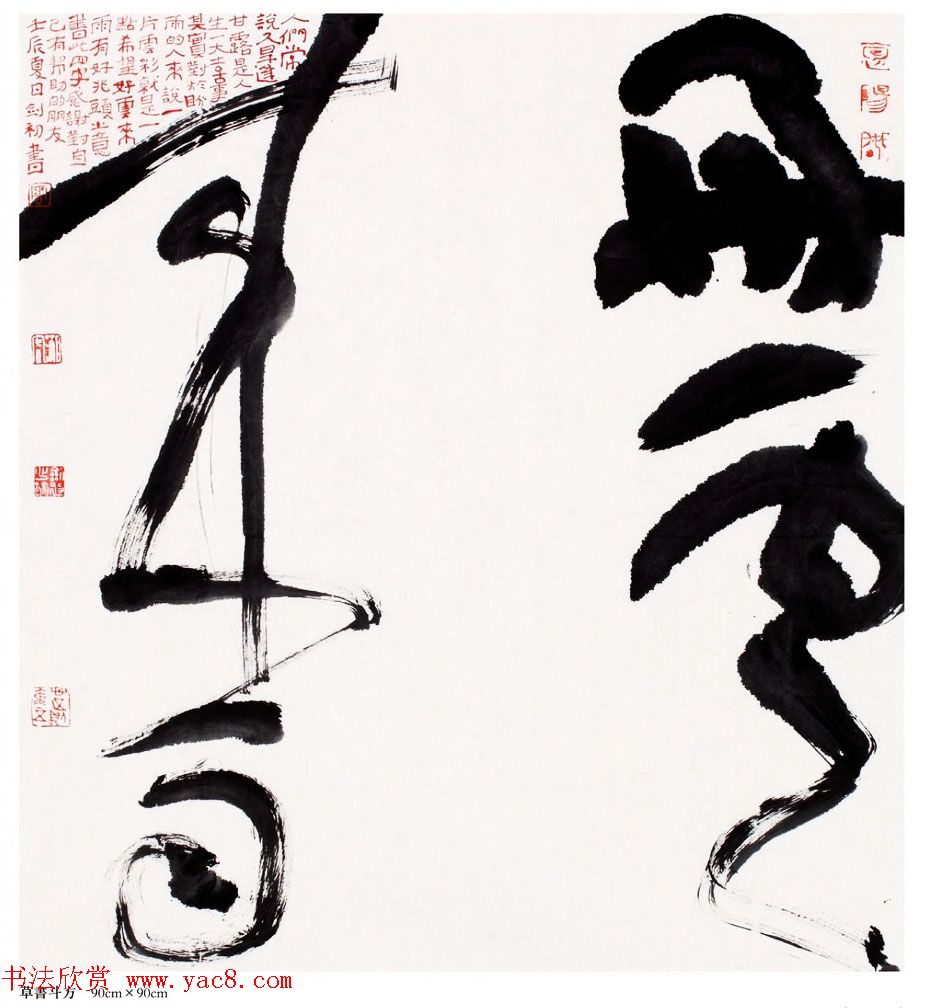 雲
來雨
人們常
說久旱逢
甘露是人
生一大幸事
其實對於盼
雨的人來說一
片雲彩就是一
點希望好雲來
雨有好兆頭之意
書此四字感謝對自
己有幫助的朋友
壬辰夏日劍初書
书法欣赏 www.yac8.com
草書斗方 90cm×90cm